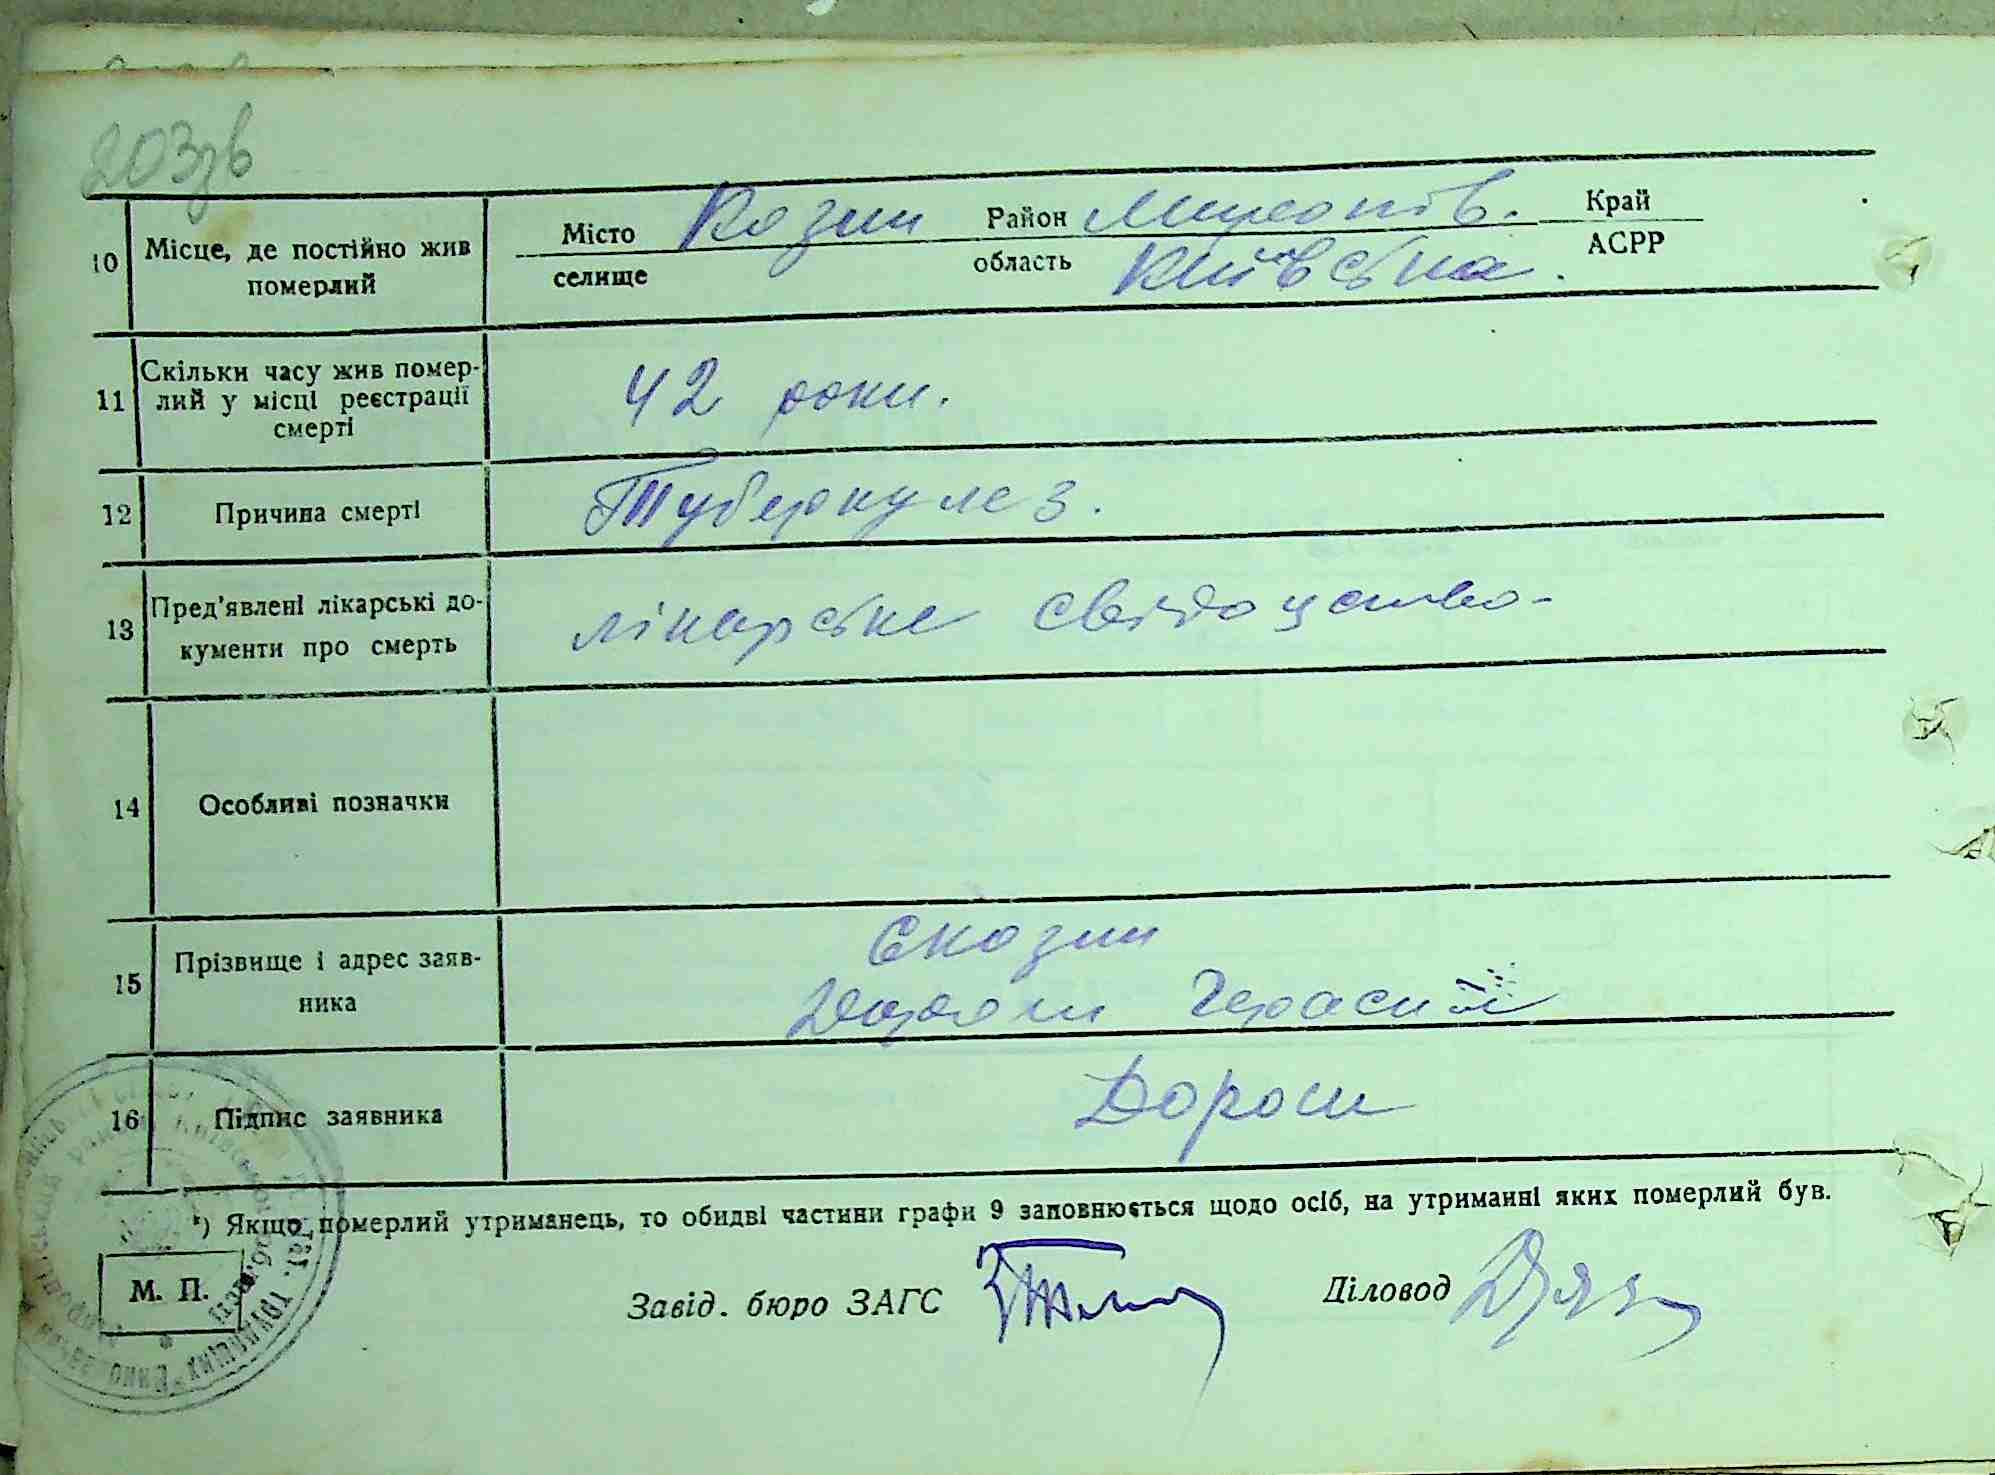 203зв
10 Місце, де постійно жив померлий
Місто селище Козин Район Миронів. Край
область Київська. АСРР
11 Скільки часу жив помер-
лий у місці реєстрації
смерті
42 роки.
12 Причина смерті Туберкулез.
13 Пред'явлені лікарські до-
кументи про смерть
лікарське свідоцтво-
14 Особливі позначки
15 Прізвище і адрес заяв-
ника
с Козин
Дорош Герасим
16 Підпис заявника Дорош
*) Якщо померлий утриманець, то обидві частини графи 9 заповнюється щодо осіб, на утриманні яких померлий був.
М. П.
Завід. бюро ЗАГС Діловод